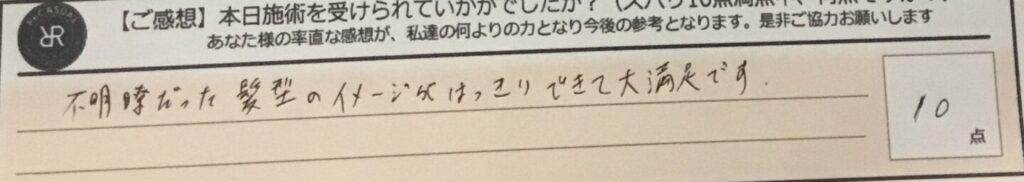 【ご感想】本日施術を受けられていかがでしたか？（ズバリ10点満点中、何点ですか
あなた様の率直な感想が、私達の何よりの力となり今後の参考となります。是非ご協力お願いします
RR
不明瞭だった髪型のイメージがはっきりできて大満足です.
10
点